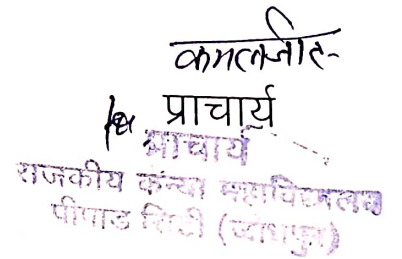 कमलजीत
प्राचार्य
प्राचार्य
राजकीय कन्या महाविद्यालय
पीपाड सिटी (जोधपुर)